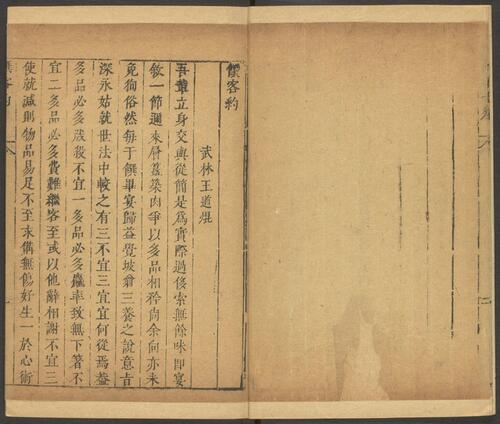 饌客約
武林王道焜
吾輩立身交與從簡是爲實際過侈索無餘味即宴
飲一節邇來層臺築肉爭以多品相矜尚余向亦未
免狗俗然每于饌畢宴歸益覺坡翁三養之說意旨
深永姑就世法中較之有三不宜三宜宜何從焉葢
多品必多殘殺不宜一多品必多麤率致無下箸不
宜二多品必多費難繼客至或以他辭相謝不宜三
使就減則物品易足不至求備無傷好生一於心術
饌客約
一